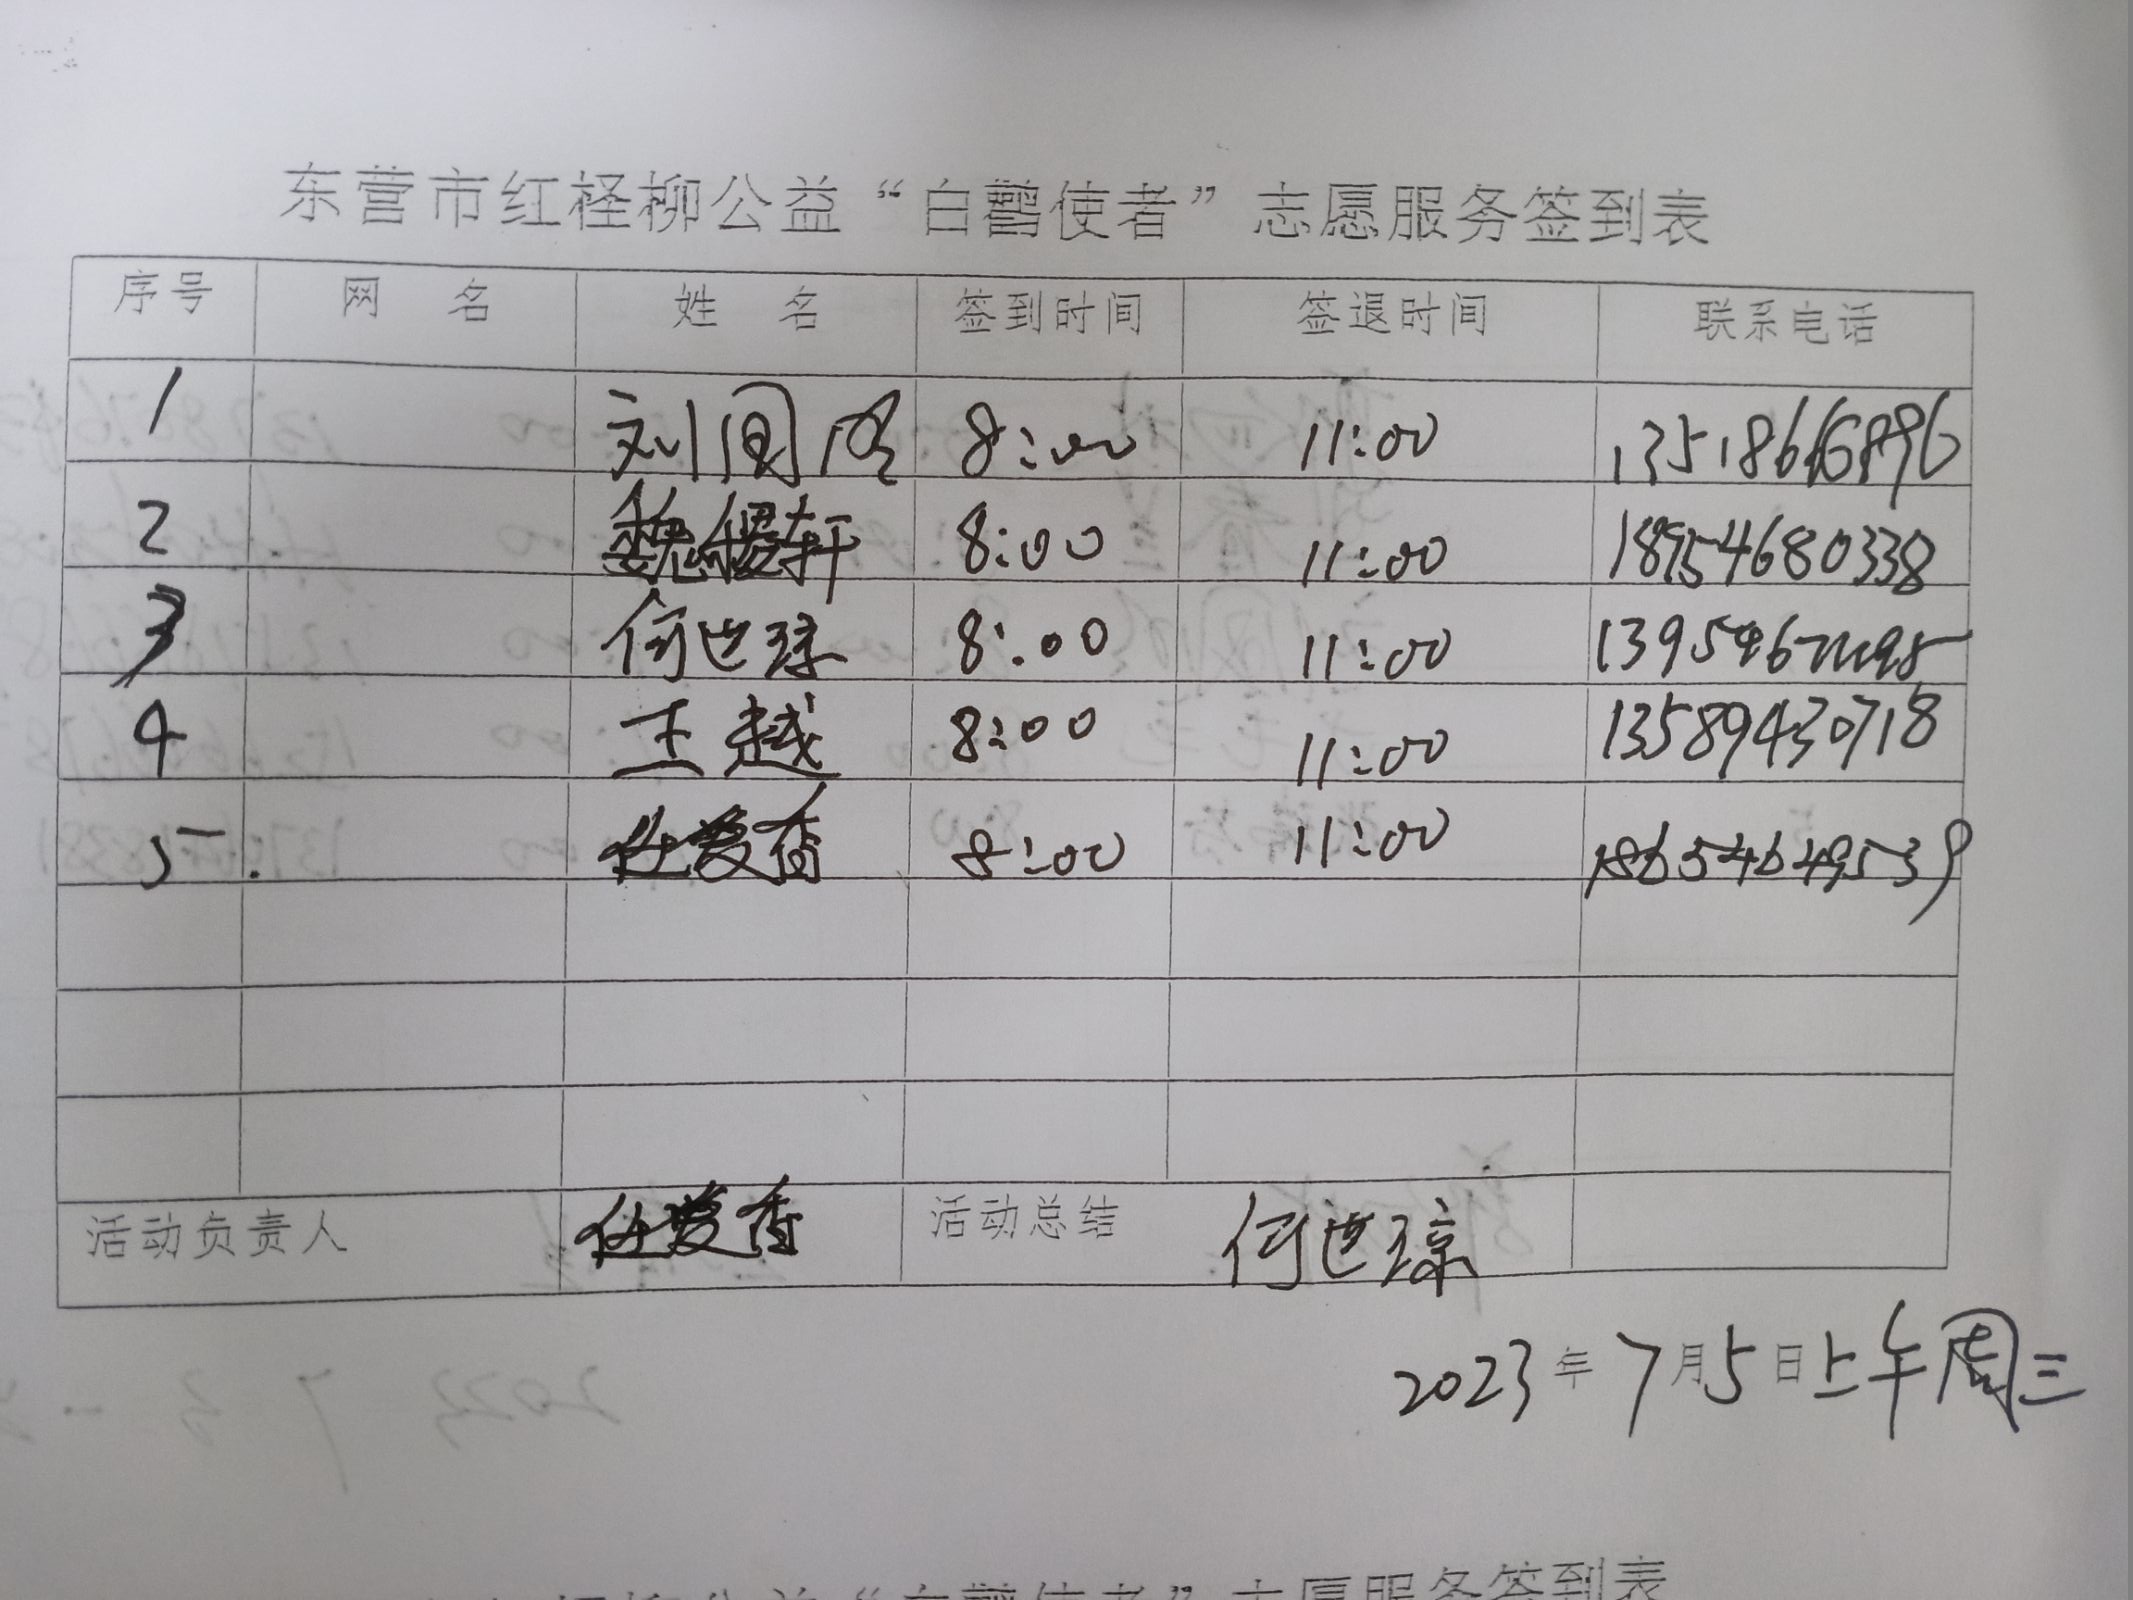 东营市红柽柳公益“白鹳使者”志愿服务签到表
序号 网名 姓名 签到时间 签退时间 联系电话
1 刘国 8:00 11:00
2 魏缨轩 8:00 11:00 18954680338
3 何世琼 8:00 11:00
4 王越 8:00 11:00 13589430718
5 任爱香 8:00 11:00 18654649539
活动负责人 任爱香 活动总结 何世琼
2023年7月5日上午周三
公益“白鹳使者”志愿服务签到表